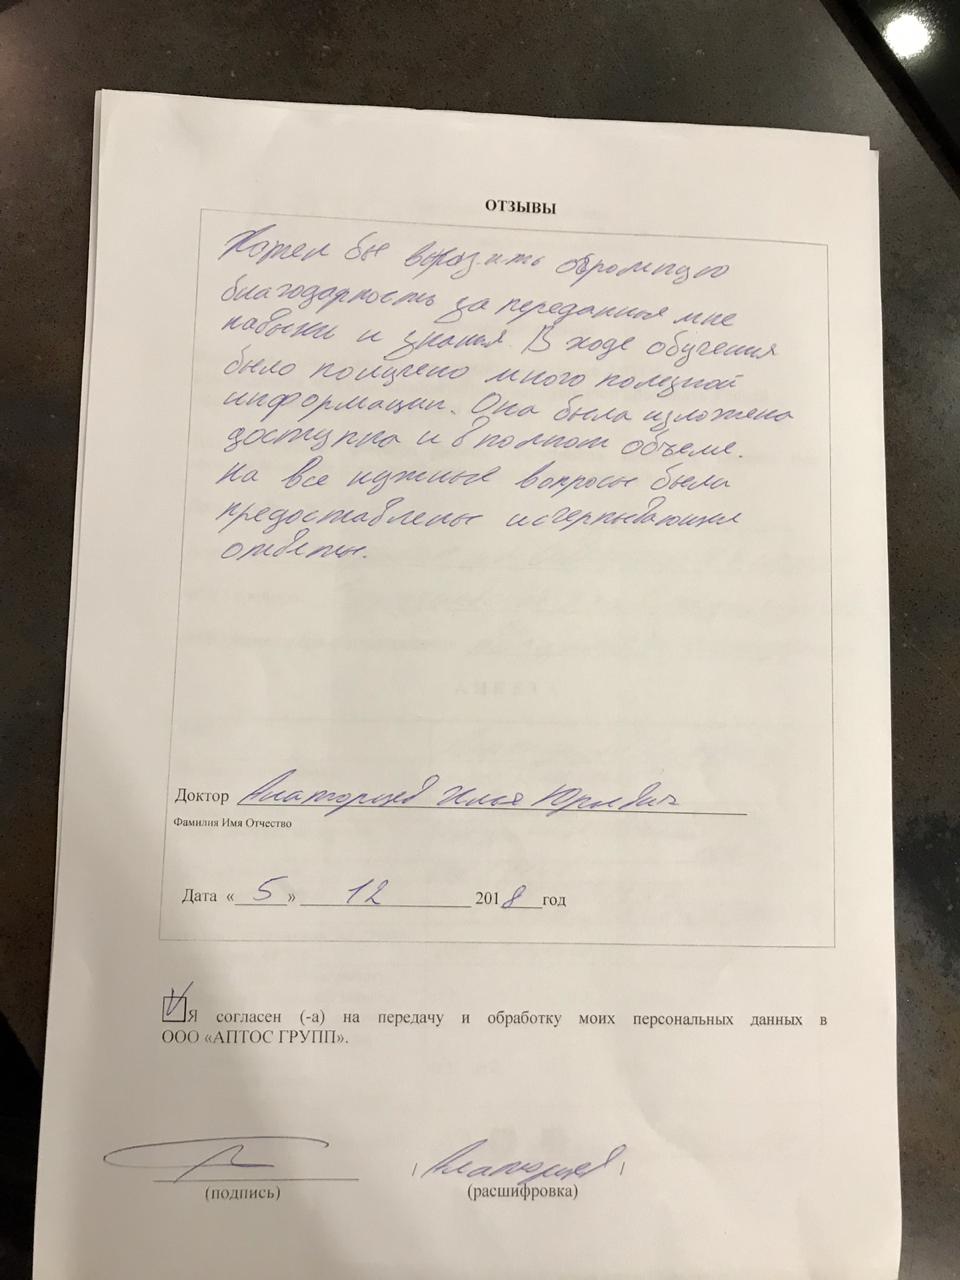 ОТЗЫВЫ
Хотел бы выразить огромную
благодарность за переданные мне
навыки и знанья. В ходе обучения
было получено много полезной
информации. Она была изложена
доступна и в полном объеме.
На все нужные вопросы были
предоставлены исчерпывающие
ответы.
Доктор Алаторцев Илья Юрьевич
Фамилия Имя Отчество
Дата «5» 12 2018 год
Я согласен (-а) на передачу и обработку моих персональных данных в
ООО «АПТОС ГРУПП».
/ Алаторцев /
(подпись) (расшифровка)